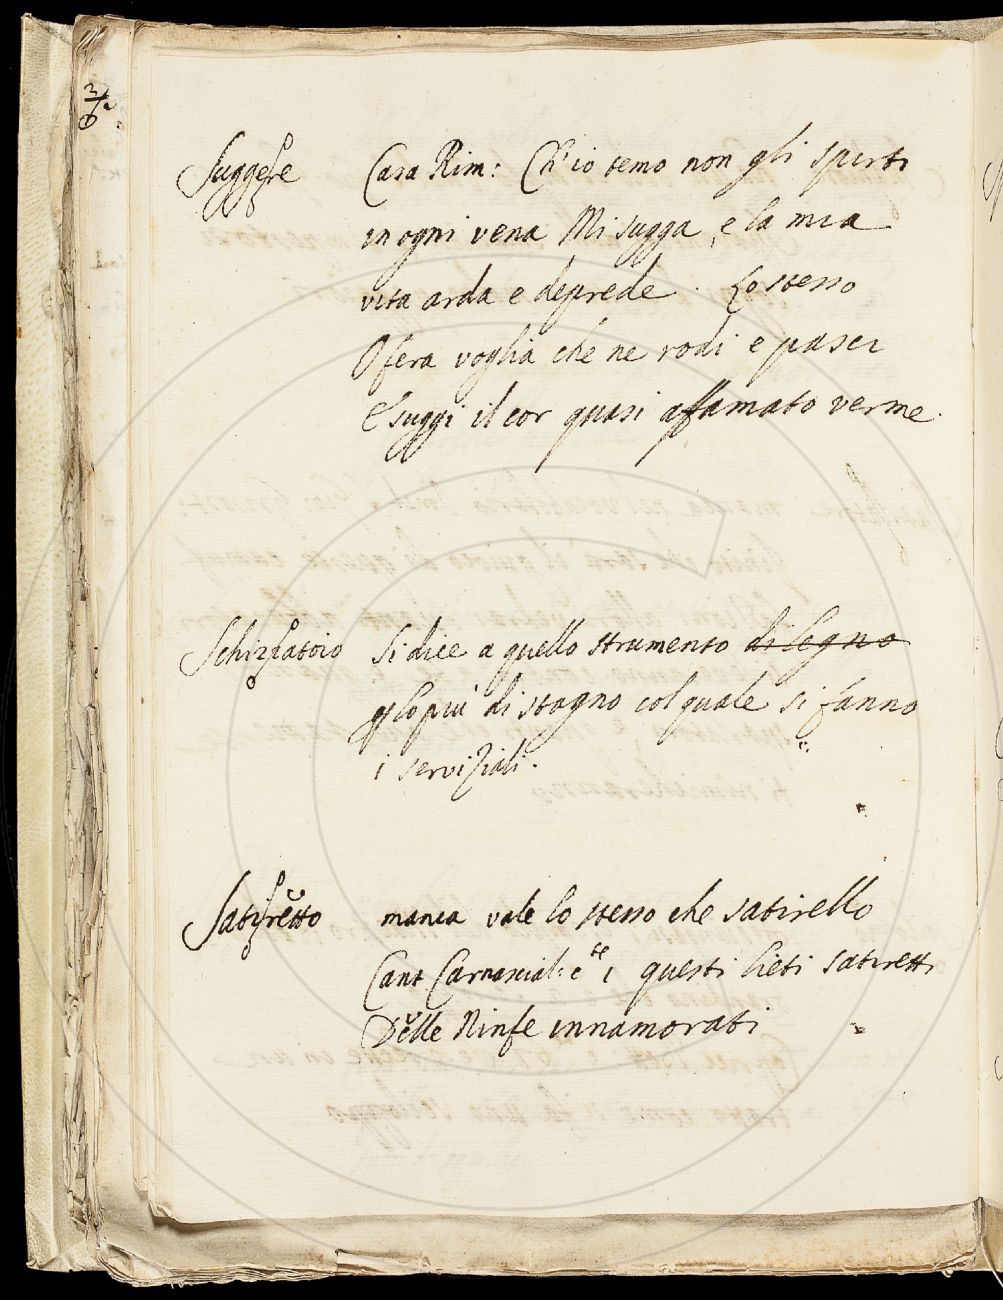 Suggere Casa Rim: Ch'io temo non gli spirti
in ogni vena Mi sugga, e la mia
vita arda e deprede. Lo stesso
O fera voglia che ne rodi e pasci
E suggi il cor quasi affamato verme.
Schizzatoio Si dice a quello strumento di legno
p lo più di stagno col quale si fanno
i serviziali.
Satiretto manca vale lo stesso che satirello
Cant Carnascial: te i questi lieti satiretti
Delle Ninfe innamorati